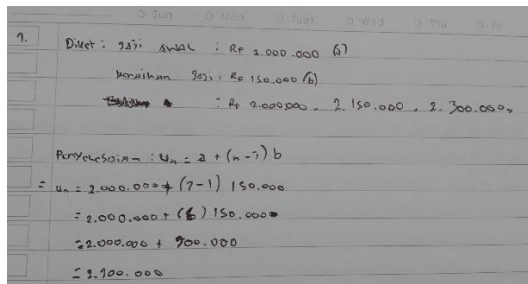 Sun Mon Tues Wed Thu Fri
1. Diket : gaji awal : Rp 2.000.000 (a)
kenaikan gaji : Rp 150.000 (b)
: Rp 2.000.000, 2.150.000, 2.300.000,
Penyelesaian : Un = a + (n-1) b
= Un = 2.000.000 + (7-1) 150.000
= 2.000.000 + (6) 150.000
= 2.000.000 + 900.000
= 2.900.000